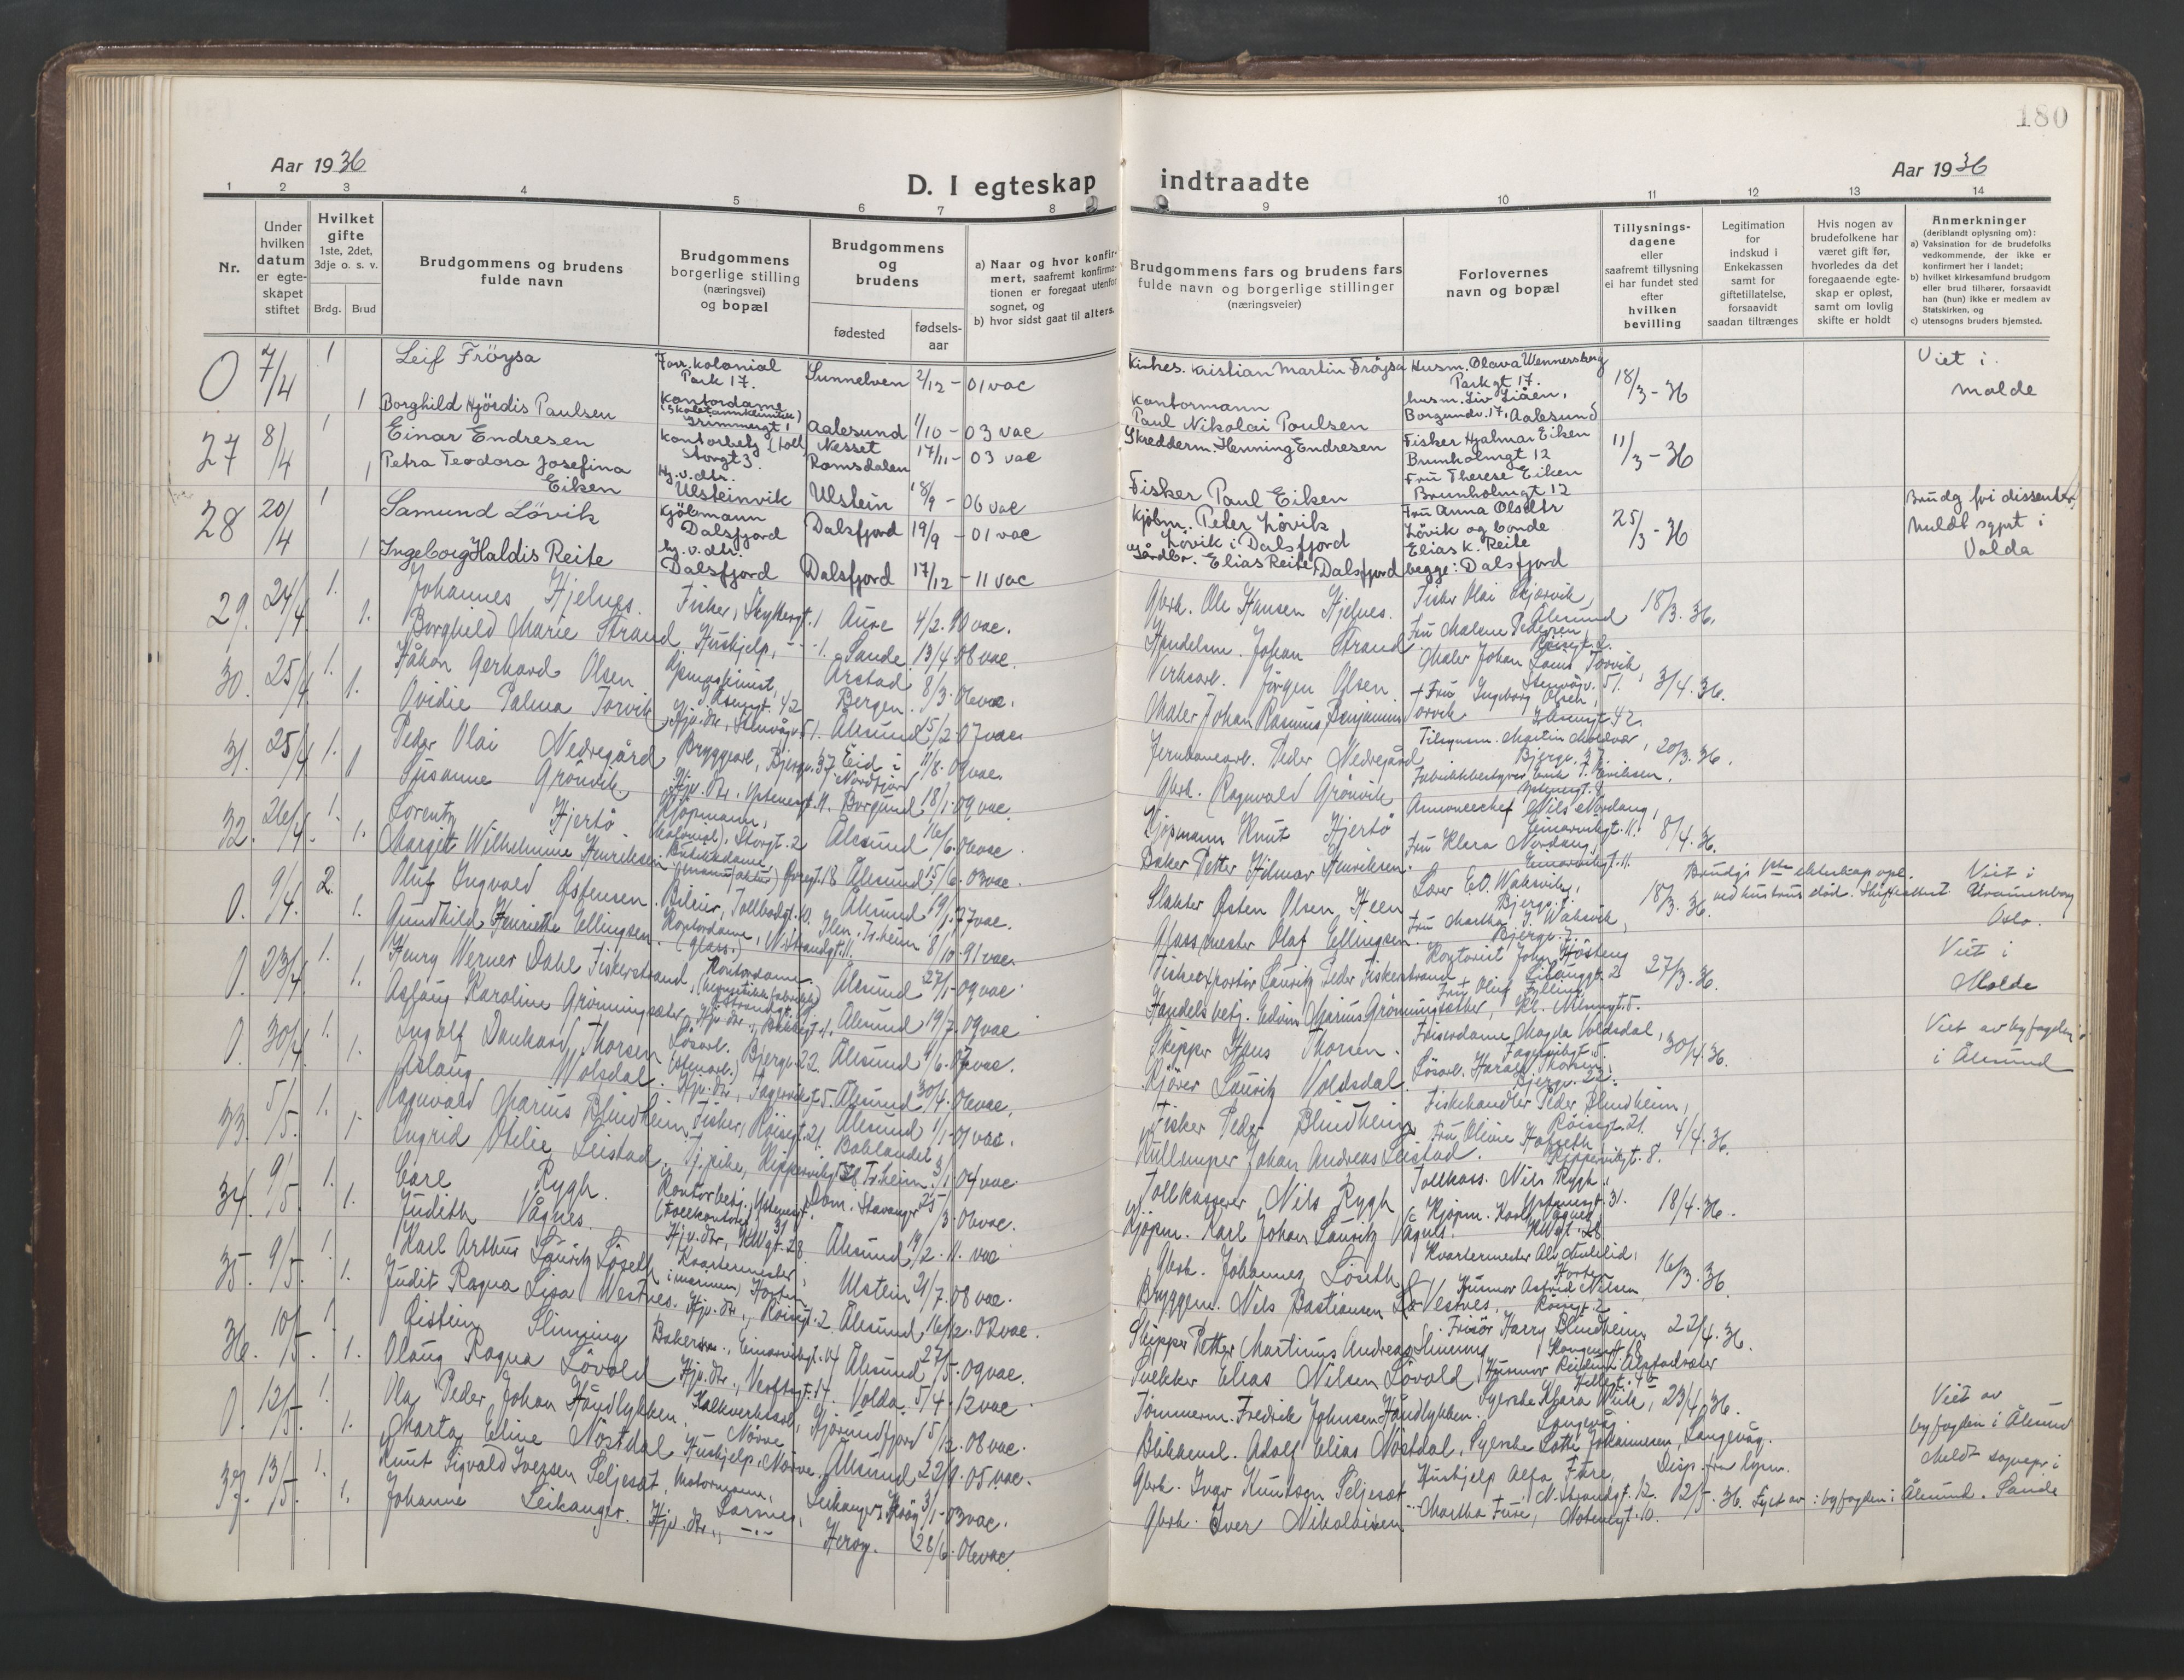 180
Aar 1936
Aar 1936
D. I egteskap indtraadte
1 2 3 4 5 6 7 8 9 10 11 12 13 14
Nr.
Under
hvilken
datum
er egte-
skapet
stiftet
Hvilket
gifte
1ste, 2det,
3dje o. s. v.
Brdg.
Brud
Brudgommens og brudens
fulde navn
Brudgommens
borgerlige stilling
(næringsvei)
og bopæl
Brudgommens
og
brudens
fødested
fødsels-
aar
a) Naar og hvor konfir-
mert, saafremt konfirma-
tionen er foregaat utenfor
sognet, og
b) hvor sidst gaat til alters.
Brudgommens fars og brudens fars
fulde navn og borgerlige stillinger
(næringsveier)
Forlovernes
navn og bopæl
Tillysnings-
dagene
eller
saafremt tillysning
ei har fundet sted
efter
hvilken
bevilling
Legitimation
for
indskud i
Enkekassen
samt for
giftetillatelse,
forsaavidt
saadan tiltrænges
Hvis nogen av
brudefolkene har
været gift før,
hvorledes da det
foregaaende egte-
skap er opløst,
samt om lovlig
skifte er holdt
Anmerkninger
(deriblandt oplysning om):
a) Vaksination for de brudefolks
vedkommende, der ikke er
konfirmert her i landet;
b) hvilket kirkesamfund brudgom
eller brud tilhører, forsaavidt
han (hun) ikke er medlem av
Statskirken, og
c) utensogns bruders hjemsted.
0 7/4 1 Leif Fröysa Forr. kolonial Park 17. Sunnelven 2/12 - 01 vac Kirkes. Kristian Martin Fröysa Husm. Olava Wennersberg Parkgt 17. 18/3 - 36 Viet i Molde
1 Borghild Hjördis Paulsen Kontordame Grimmergt 1 Aalesund 1/10 - 03 vac Kontormann Paul Nikolai Poulsen husm. Liv Liåen, Borgundv. 17, Aalesund
27 8/4 1 Einar Endresen Kontorbetj (toll) Storgt 3. Nesset Romsdalen 17/11 - 03 vac Skredderm. Henning Endresen Fisker Hjalmar Eiken Brunholmgt 12 11/3 - 36
1 Petra Teodora Josefina Eiken Hj. v. dtr. Ulsteinvik Ulstein 18/9 - 06 vac Fisker Paul Eiken Fru Therese Eiken Brunholmgt 12
28 20/4 1 Samund Lövik Kjöbmann Dalsfjord Dalsfjord 19/9 - 01 vac Kjöbm. Peter Lövik Lövik i Dalsfjord Fru Anna Lövik og bonde 25/3 - 36 Brudg fri dissenter, Meldt sgprt i Volda
1 Ingeborg Haldis Reite hj. v. dtr. Dalsfjord Dalsfjord 17/12 - 11 vac Gårdbr. Elias Reite, Dalsfjord Elias K. Reite begge: Dalsfjord
29. 24/4 1. Johannes Hjelnes. Fisker, Skyttergt. 1 Aure 4/2. 90 vac. Gbrk. Ole Hansen Hjelnes. Fisker Olai Skjörvik, Ålesund 18/3. 36.
1. Borghild Marie Strand, Hushjelp, - " - 1. Sande 13/4. 08 vac. Handelsm. Johan Strand. Fru Malene Pedersen, Röisgt. 2.
30. 25/4 1. Håkon Gerhard Olsen Årstad Bergen. 8/3. 06 vac. Verksarb. Jörgen Olsen. Maler Johan Torvik, Stenvågv. 51. 3/4. 36.
1. Ovidie Palma Torvik Hjv. dtr, Stenvågv. 51. Ålesund 15/2. 07 vac. Maler Johan Rasmus Benjamin Torvik Fru Ingeborg Olsen,
31. 25/4 1. Peder Olai Nedregård Bryggearb, Bjergv. 37. Eid i Nordfjord 11/8. 09 vac. Jernbanearb. Peder Nedregård Martin Moldvær, Bjergv. 37. 20/3. 36.
1 Susanne Grönvik. Hjv. dtr. Borgund 18/1. 09 vac. Gbrk. Ragnvald Grönvik Fabrikkbestyrer Erik T. Eriksen.
32. 26/4. 1. Lorentz Hjertö Kjöpmann, (kolonial), Storgt. 2 Ålesund 16/6. 06 vac. Kjöpmann Knut Hjertö Annoncechef Nils Nordang, 8/4. 36.
1. Margit Wilhelmine Henriksen Butikkdame, (manufaktur) Övregt. 18 Ålesund 15/6. 03 vac. Baker Petter Hilmar Henriksen. Fru Klara Nordang,
0. 9/4. 2. Oluf Ingvald Østensen. Bileier, Tollbodgt. 10. Ålesund 19/1. 77 vac. Slakter Östen Olsen Heen Lærer E. O. Waksvik, Bjergv. 7. 18/3. 36. Brudg's 1ste ekteskap opl. ved hustrus död. Skifteattest. Viet i Uranienborg Oslo.
1. Gundhild Henriette Ellingsen. Kontordame, (glass.) N. Strandgt. 11. Ilen. Tr.heim 8/10. 91 vac. Glassmester Olaf Ellingsen. Fru Martha J. Waksvik, Bjergv. 7.
0. 23/4. 1. Henry Werner Dahl Fiskerstrand, Ålesund 27/1. 09 vac. Fiskeexportör Lauritz Peder Fiskerstrand Kontorist John Hösteng 27/3. 36. Viet i Molde
1. Aslaug Karoline Grönningsæter, Hjv. dtr., Ålesund 19/7. 09 vac Handelsbetj. Edvin Marius Grönningsæter,
0. 30/4. 1. Ingolf Dankard Thorsen Lösarb. Bjergv. 22. Ålesund 9/6. 07 vac. Skipper Hans Thorsen. Frisördame Magda Voldsdal, 30/4. 36. Viet av byfogden i Ålesund
1. Aslaug Volsdal. Hjv. dtr, Ålesund 30/4. 06 vac. Kjörer Lauritz Voldsdal. Lösarb. Harald Thorsen, Bjergv. 22.
33. 5/5. 1. Ragnvald Marius Blindheim, Fisker, Röisgt. 21. Ålesund 1/1. 01 vac. Fisker Peder Blindheim Fiskehandler Peder Blindheim, Röisgt. 21. 4/4. 36.
1. Ingrid Otilie Leistad, Tj. pike, Kippervikgt. 8. Baklandet Tr.heim. 3/1. 04 vac. Kullemper Johan Andreas Leistad. Fru Oline Hofseth, Kippervikgt. 8.
34. 9/5. 1. Carl Rygh. Kontorbetj., (tollkontoret) Dom. Stavanger 25/3. 06 vac. Tollkasserer Nils Rygh Tollkass. Nils Rygh, 18/4. 36.
1. Judith Vågnes. Hjv. dtr, KWgt. 28 Ålesund 19/2. 11. vac Kjöpm. Karl Johan Lauritz Vågnes. Kjöpm. Karl Vågnes KWgt. 28
35. 9/5. 1. Karl Arthur Lauritz Löseth Kvartermester i marinen, Horten Ulstein 21/7. 08 vac. Gbrk. Johannes Löseth Kvartermester Horten 16/3. 36.
1. Judit Ragna Lisa Westnes. Hjv. dtr., Röisgt. 2. Ålesund 16/12. 02 vac. Bryggem. Nils Bastiansen Vestnes, Husmor Astrid Nilsen Röisgt. 2.
36. 10/5. 1. Öistein Slinning Ålesund 27/5. 09 vac. Skipper Petter Martinus Andreas Slinning. Frisör Harry Blindheim, 22/4. 36.
1. Olaug Ragna Lövold Hjv. dtr., Volda. 5/4. 12 vac. Snekker Elias Nilsen Lövold Husmor
0. 12/5. 1. Ola Peder Johan Håndlykken, Kalkverksarb., Nörve Hjörundfjord 5/12. 08 vac. Tömmerm. Fredrik Johnsen Håndlykken. Syerske Klara Wiik, Langevåg. 23/4. 36. Viet av byfogden i Ålesund
1. Marta Eline Nöstdal Hushjelp, Nörve. Ålesund 22/9. 05 vac. Blikkensl. Adolf Elias Nöstdal, Syerske Lotte Johannesen, Langevåg.
37. 13/5. 1. Knut Sigvald Iversen Seljeset, Motormann, Larsnes, 3/1. 03 vac. Gbrk. Ivar Knutsen Seljeset Hushjelp Alfa Fure, N. Strandgt. 12. 12/5. 36. Lyst av byfogden i Ålesund. Meldt sogneprt i Sande
1. Johanne Leikanger. Hjv. dtr., - " - Heröy. 28/6. 06 vac. Gbrk. Iver Nikolaisen Martha Fure,